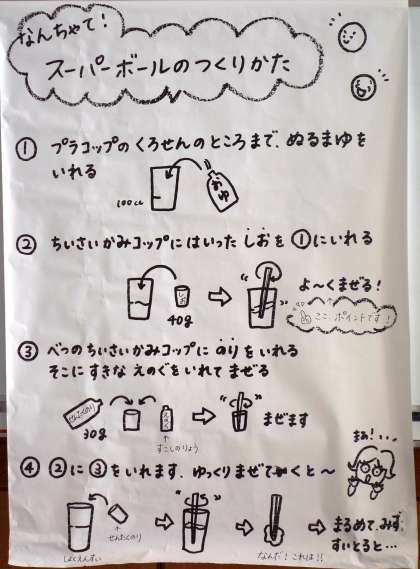 なんちゃて!
スーパーボールのつくりかた
① プラコップのくろせんのところまで、ぬるまゆを
いれる
100cc
おゆ
② ちいさいかみコップにはいった しおを ①にいれる
しお
40g
よ〜くまぜる!
ここ、ポイントです!
③ べつのちいさいかみコップに のりをいれる
そこに すきな えのぐをいれて まぜる
せんたくのり
30g
すこしのりょう
まぜます
④ ②に③をいれます、ゆっくりまぜてくと〜
まぁ!...
しょくえんすい
せんたくのり
なんだ!これは!!
まるめて、みず、
すいとると…